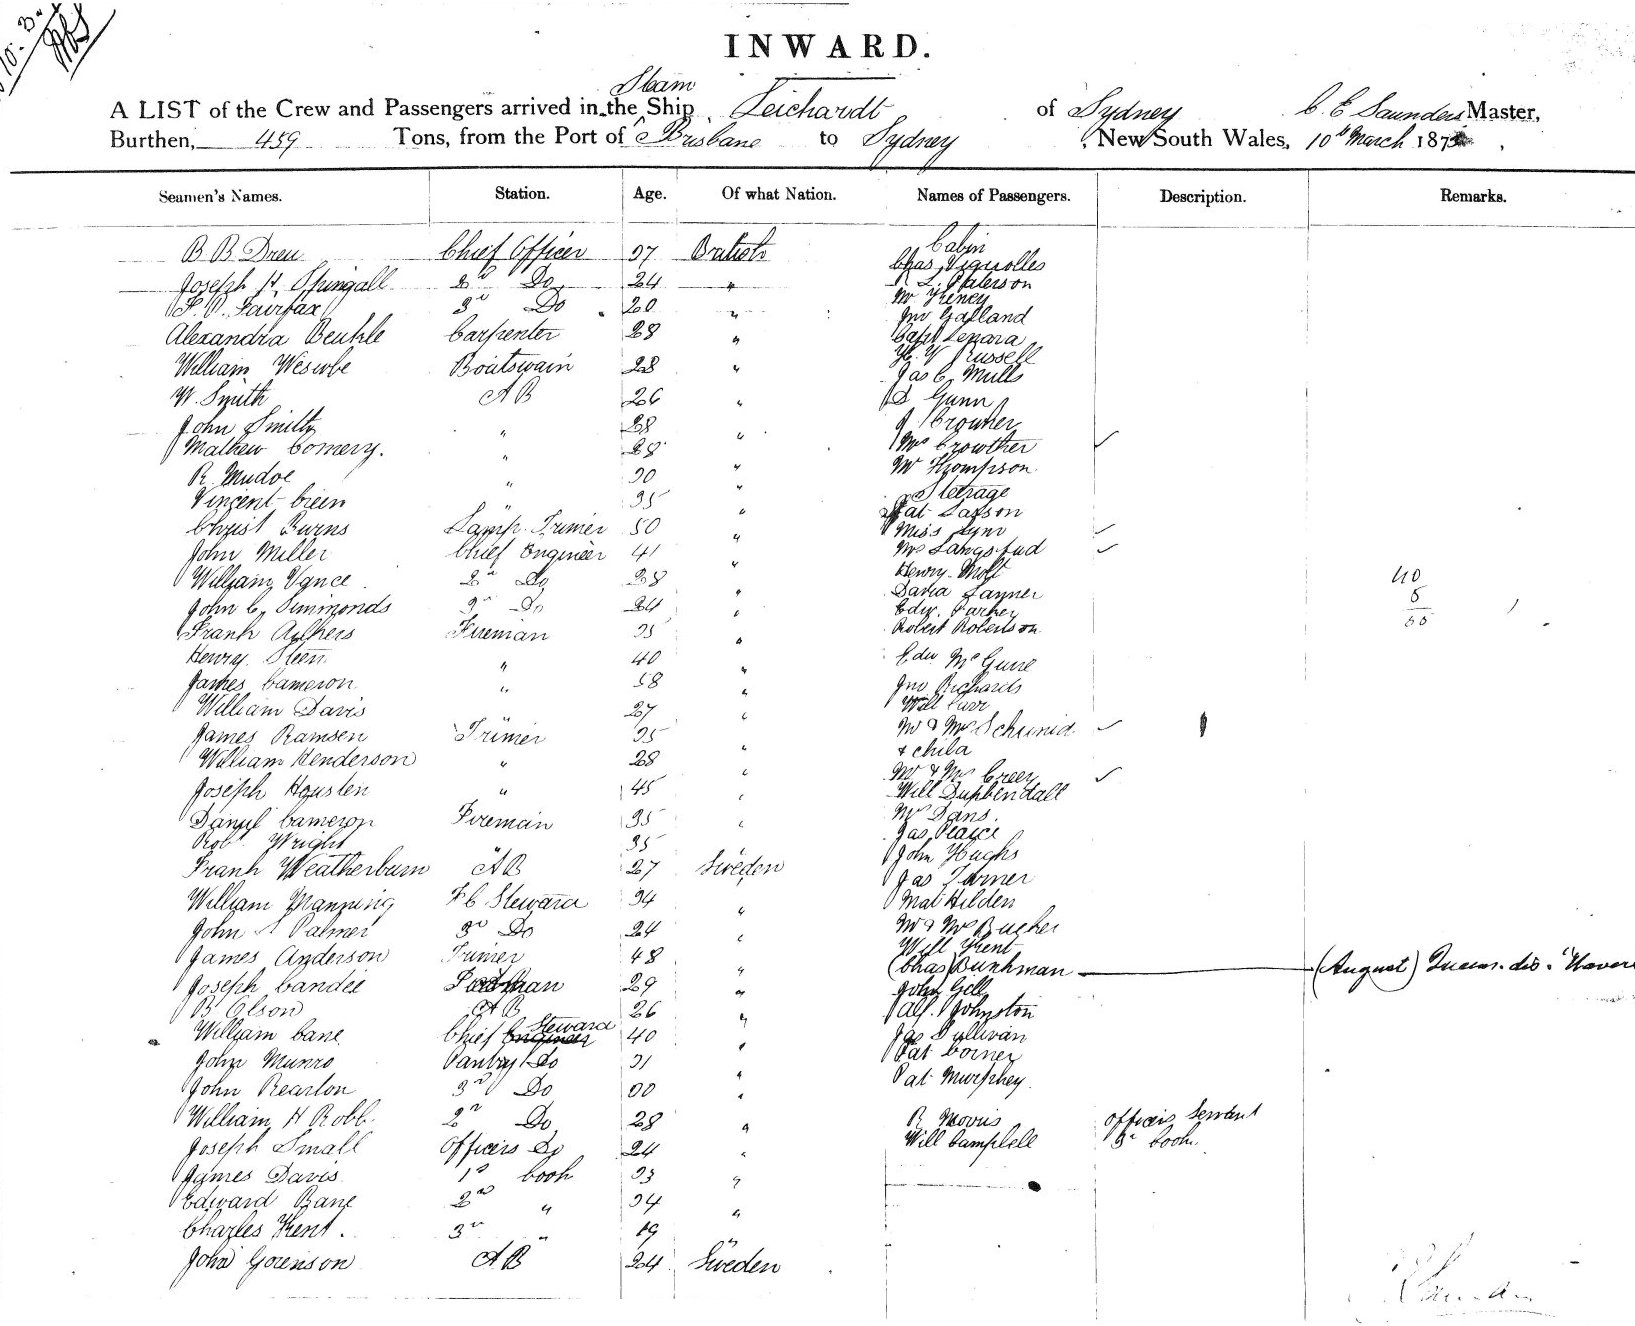 INWARD.
Steam
A LIST of the Crew and Passengers arrived in the Ship Leichardt of Sydney C. E. Saunders Master,
Burthen, 459 Tons, from the Port of Brisbane to Sydney, New South Wales, 10th March 187
Seamen's Names. Station. Age. Of what Nation. Names of Passengers. Description. Remarks.
Cabin
B B Drew Chief Officer 37 British
Chas Vignolles
Joseph H. Springall 2nd Do 24 "
R L Paterson
F. P. Fairfax 3rd Do 20 "
Mr Feney
Jno Galland
Alexandra Beuhle Carpenter 28 "
Capt Lenara
H. V Russell
William Weswbe Boatswain 28 "
Jas C. Mills
W. Smith A B 26 "
D Gunn
John Smith " 28 "
J Crowther
Mathew Comery. " 28 "
Mrs Crowther
Mr Thompson
R. Mudoe " 30 "
Steerage
Vincent Creen " 35 "
Pat Sasson
Christ Burns Lamp Trimer 50 "
Miss Lynn
John Miller Chief Engineer 41 "
Mrs Langstud
William Vance 2nd Do 28 "
Henry Molt
David Tanner
40
5
John C. Simmonds 3rd Do 24 "
Edw. Parkey
Frank Athers Fireman 35 "
Robert Robertson
Henry Steen " 40 "
Edw McGuire
James Cameron " 38 "
Jno Richards
William Davis " 27 "
Will Carr
James Ramsen Trimer 35 "
Mr & Mrs Schimid
& child
William Henderson " 28 "
Mr & Mrs Creer
Joseph Housten " 45 "
Will Dupbendall
Danyil Cameron Fireman 35 "
Mr Dans.
Robt Wright " 35 "
Jas Pearce
John Hughs
Frank Weatherburn A B 27 Sweden
Jas Turner
William Manning F C Steward 34 "
Mat Hilden
John A Palmer 3rd Do 24 "
Mr & Mrs Bucher
Will Kent
James Anderson Trimer 48 "
(Chas) Bunkman (August)
Joseph Candie man 29 "
John Gill
B Olson A B 26 "
Alf. Johnston
William Cane Chief Steward 40 "
Jas Sullivan
John Munro Pantry Do 31 "
Pat Corner
John Rearlon 3rd Do 30 "
Pat Murphey.
William H Robb. 2nd Do 28 "
R Morris Officers Servant
Joseph Small Officers Do 24 "
Will Campbell 3rd Cook.
James Davis 1st Cook 33 "
Edward Bane 2nd " 34 "
Charles Kent. 3rd " 19 "
John Gorenson A B 24 Sweden